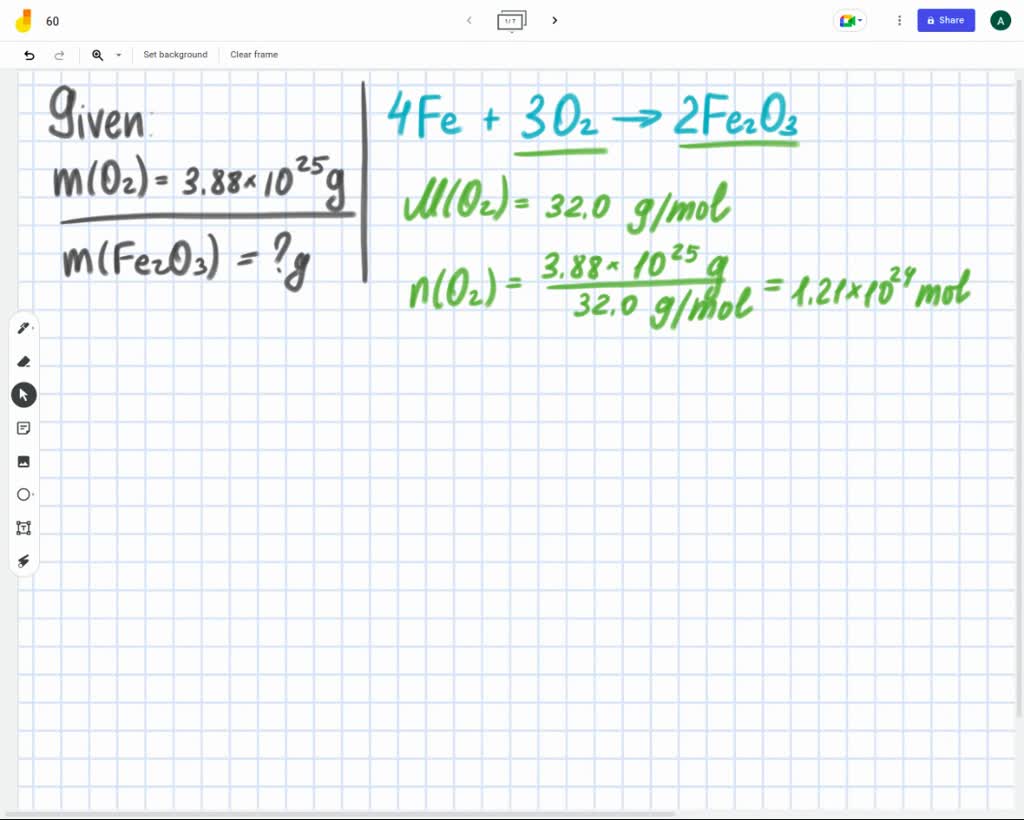 60
1/7
Share
A
Set background
Clear frame
Given:
m(O₂) = 3.88×10²⁵g
m(Fe₂O₃) = ?g
4Fe + 3O₂ → 2Fe₂O₃
M(O₂) = 32.0 g/mol
n(O₂) = 3.88×10²⁵ g / 32.0 g/mol = 1.21×10²⁴ mol